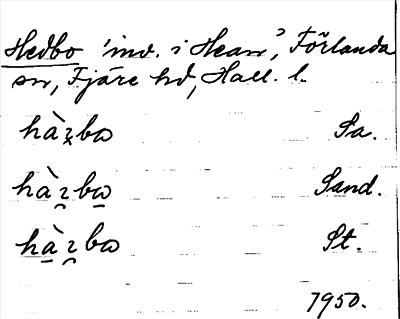 Hedbo 'inv. i Hean', Förlanda
sn, Fjäre hd, Hall. l.
hàꝛba Sa.
hàꝛba Sand.
hàꝛba St.
1950.